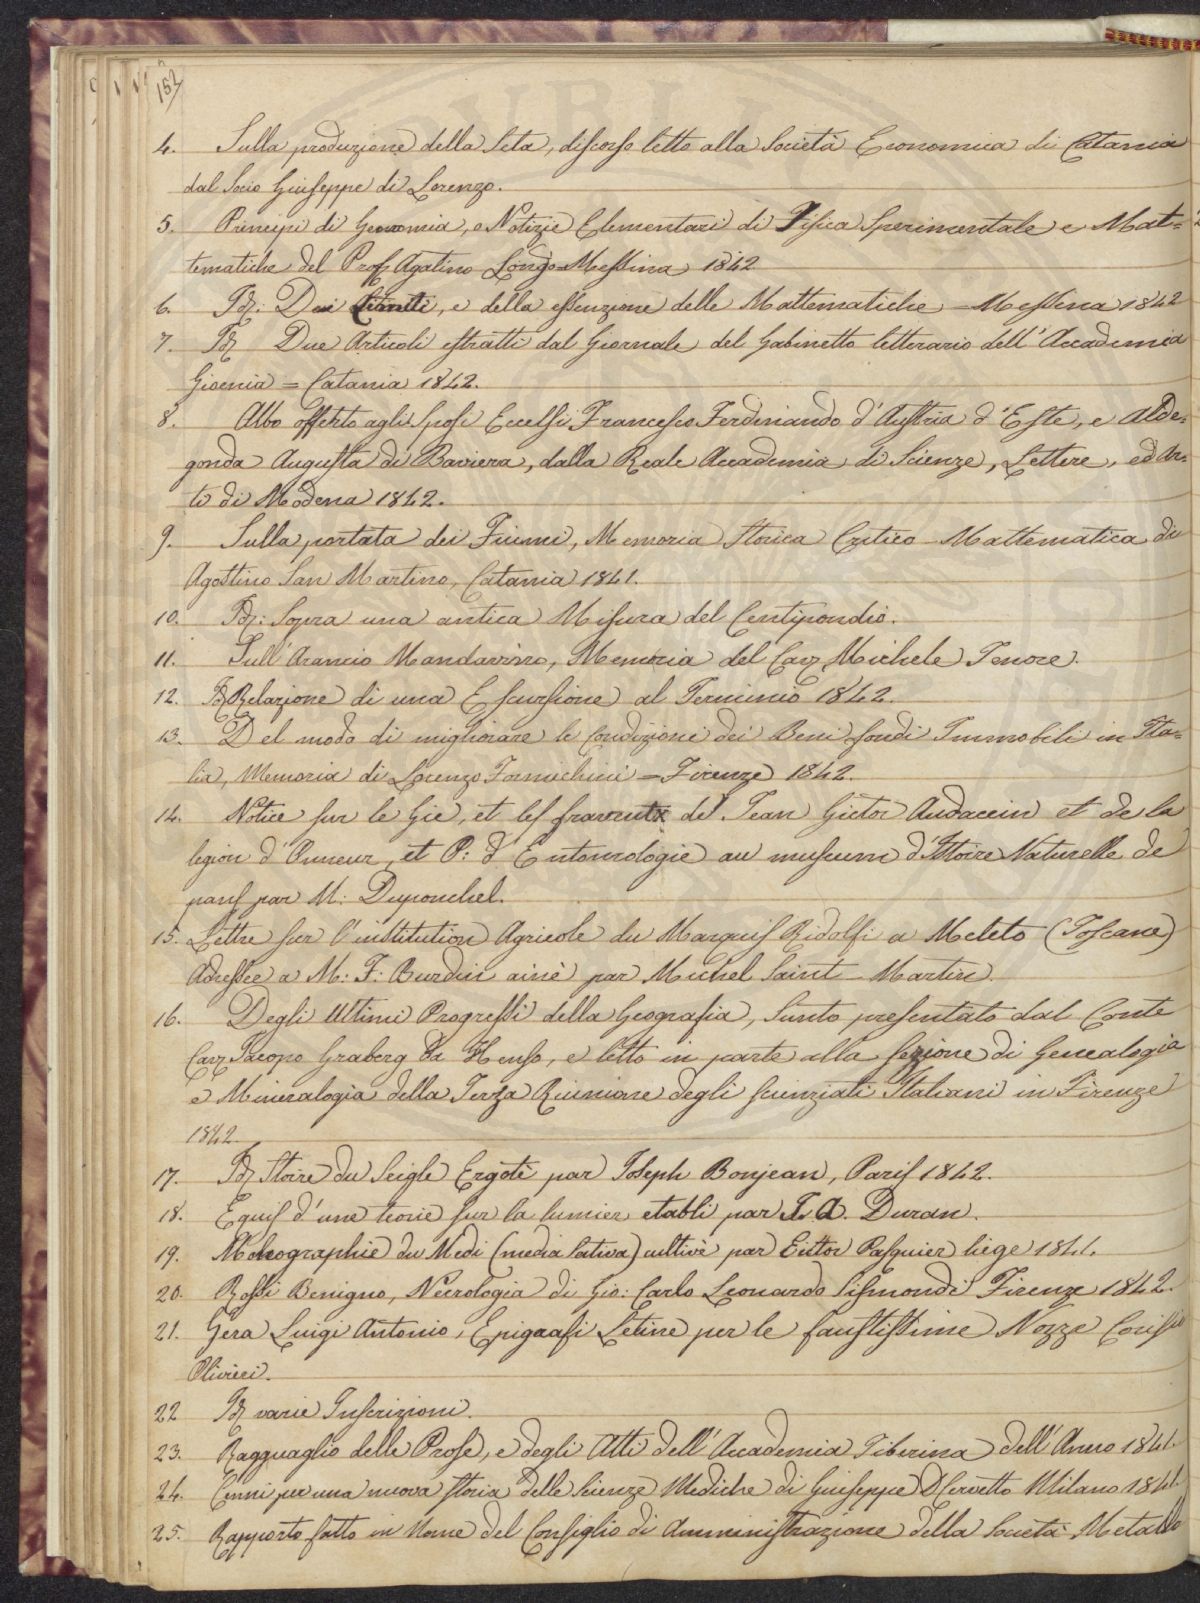 152
4. Sulla produzione della Seta, discorso letto alla Società Economica di Catania
dal Socio Giuseppe di Lorenzo.
5. Principi di Geonomia, o Notizie Elementari di Fisica Sperimentale e Mat=
tematiche del Prof. Agatino Longo = Messina 1842
6. Id: Dei Limiti, e della essenzione delle Mattematiche = Messina 1842
7. Id Due Articoli estratti dal Giornale del Gabinetto letterario dell'Accademia
Gioenia = Catania 1842.
8. Albo offerto agli Sposi Eccelsi Francesco Ferdinando d'Austria d'Este, e Alde=
gonda Augusta di Baviera, dalla Reale Accademia di Scienze, Lettere, ed Ar-
ti di Modena 1842.
9. Sulla portata dei Fiumi, Memoria Storica Critico Mattematica di
Agostino San Martino, Catania 1841.
10. Id: Sopra una antica Misura del Centipondio.
11. Sull'Arancio Mandarino, Memoria del Cav. Michele Tenore.
12. Id Relazione di una Escursione al Terminio 1842.
13. Del modo di migliorare le Condizioni dei Beni fondi Immobili in Ita=
lia, Memoria di Lorenzo Formichini = Firenze 1842.
14. Notice sur le Gie, et les fravrutx de Jean Gictor Audaccin et de la
legion d'Onneur, et P: d'Entomologie au museum d'Istoire Naturelle de
paris par M: Duponchel.
15. Lettre sur l'institution Agricole du Marquis Ridolfi a Meleto (Toscane)
Adressèe a M: F: Burdin ainè par Michel Saint Martin.
16. Degli Ultimi Progressi della Geografia, Sunto presentato dal Conte
Cav. Jacopo Graberg da Hemso, e letto in parte alla sezione di Genealogia
e Mineralogia della Terza Riunione degli scienziati Italiani in Firenze
1842.
17. Id Stoire du Seigle Ergotè par Joseph Bonjean, Paris 1842.
18. Equis d'une teorie sur la lumier etabli par F. A. Duran.
19. Mohographie du Medi (media Sativa) cultivè par Eittor Pasquier liege 1841.
20. Rossi Benigno, Necrologia di Gio: Carlo Leonardo Sismondi Firenze 1842.
21. Gera Luigi Antonio, Epigrafi Letine per le faustissime Nozze
Olivieri.
22 Id varie Inscrizioni.
23. Ragguaglio delle Prose, e degli Atti dell'Accademia Tiberina dell'Anno 1841.
24. Cenni per una nuova storia delle Scienze Mediche di Giuseppe D. Cervetto Milano 1841.
25. Rapporto fatto in Nome del Consiglio di Amministrazione della Società Metallo